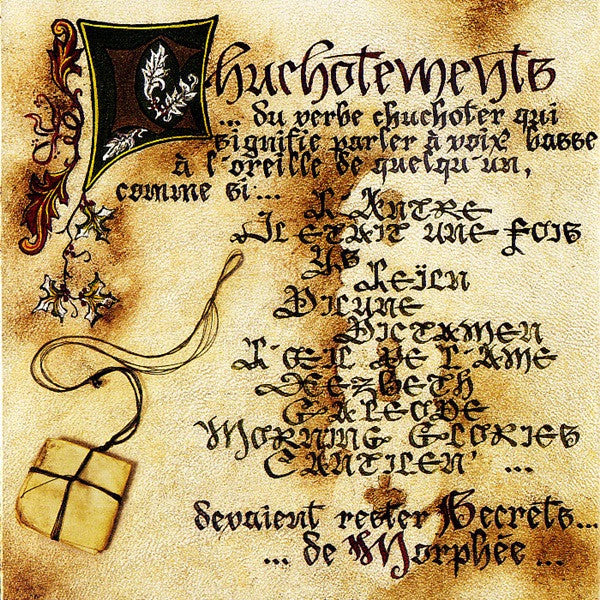 Chuchotements
... du verbe chuchoter qui
signifie parler à voix basse
à l'oreille de quelqu'un,
comme si ...
L'Antre
Il était une fois
Ys
Leïln
Dicune
Dictamen
L'Œil de l'Âme
Xezbeth
Galeode
Morning Glories
Cantilen' ...
devaient rester Secrets...
... de Morphée ...